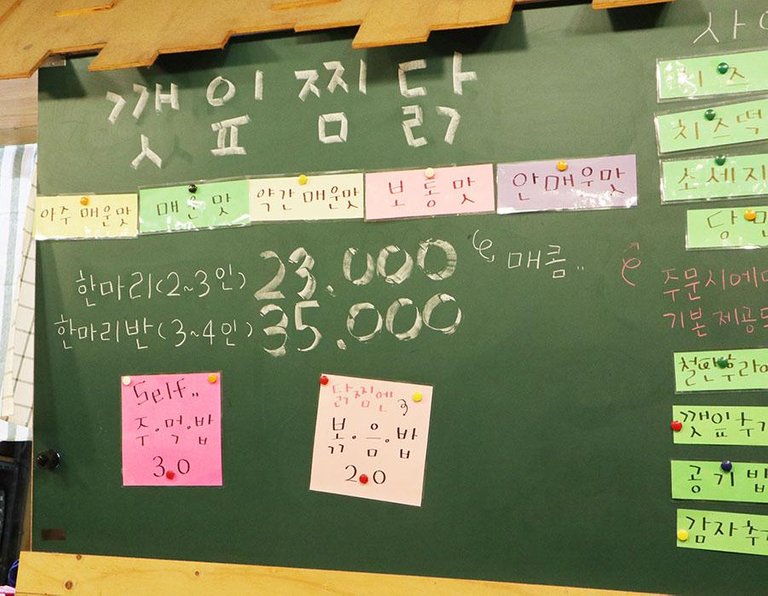 깻잎찜닭
아주 매운맛
매운맛
약간 매운맛
보통맛
안매우맛
한마리(2~3인) 23.000
매콤..
한마리반(3~4인) 35.000
Self..
주·먹·밥
3.0
닭찜엔
볶·음·밥
2.0
사
치즈
치즈떡
소세지
당면
주문시에
기본 제공
철판후라이
깻잎추
공기밥
감자추